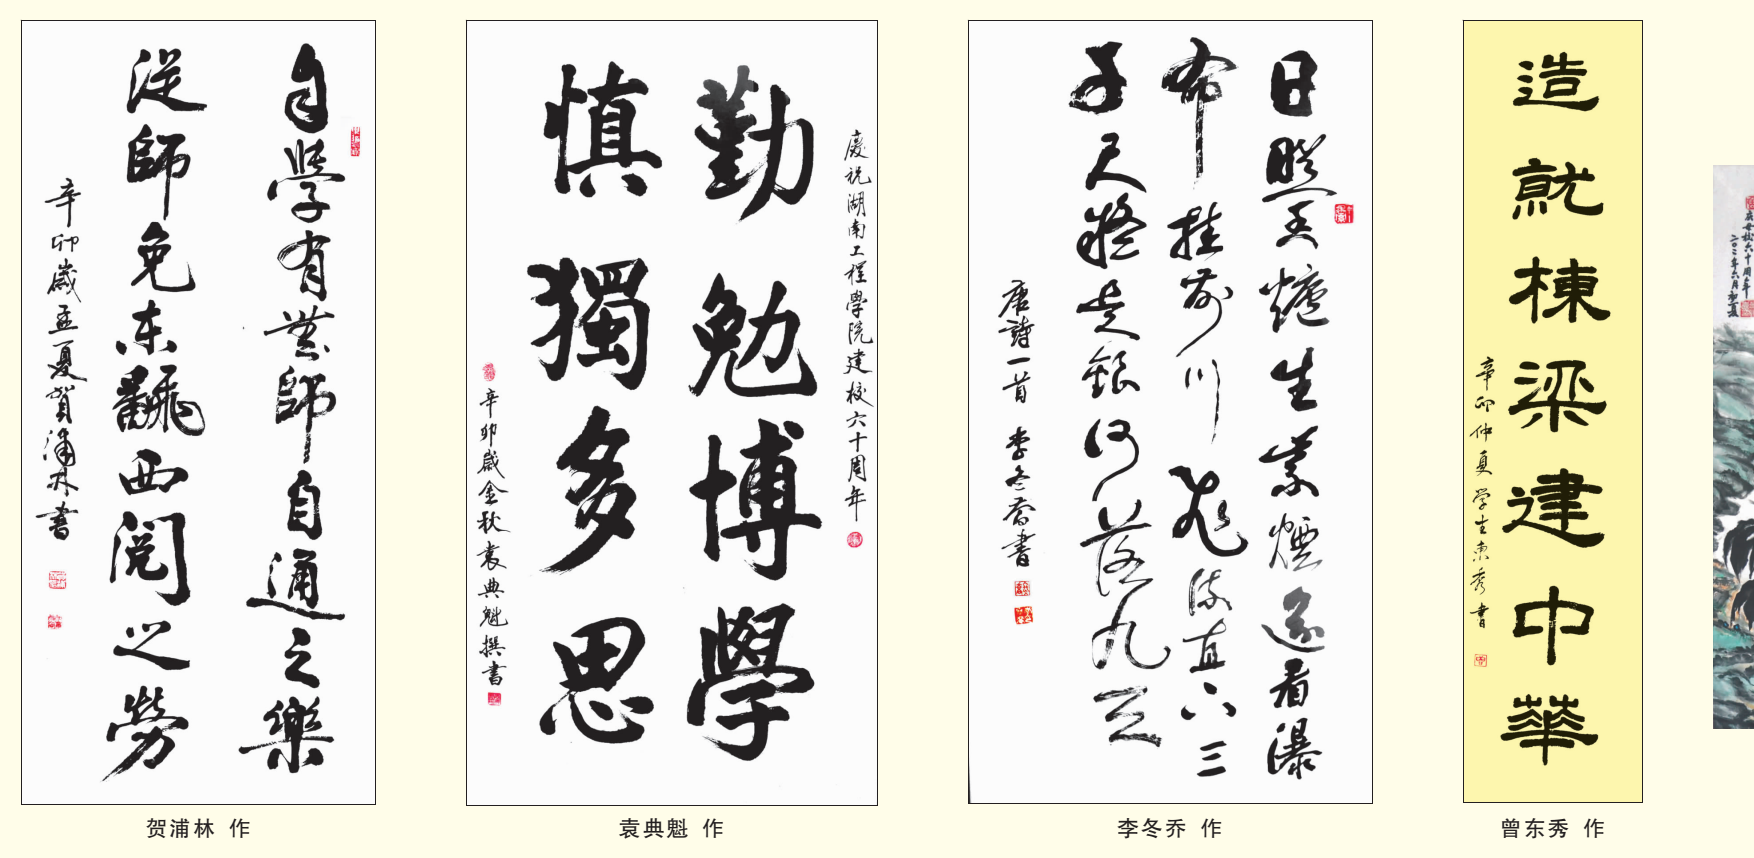 自學有無師自通之樂
從師免東翻西閱之勞
辛卯歲孟夏賀浦林書
贺浦林 作
慶祝湖南工程學院建校六十周年
勤勉博學
慎獨多思
辛卯歲金秋袁典魁撰書
袁典魁 作
日照香爐生紫煙遙看瀑
布挂前川飛流直下三
千尺疑是銀河落九天
唐詩一首 李冬喬書
李冬乔 作
造就棟梁建中華
辛卯仲夏 学生東秀書
曾东秀 作